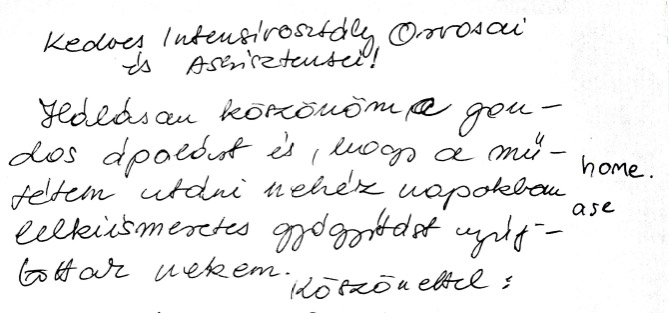 Kedves Intensivosztály Orvosai
és Assisztensei!
Hálásan köszönöm a gon-
dos ápolást és, hogy a mű-
tétem utáni nehéz napokban
lelkiismeretes gyógyítást nyúj-
tottak nekem.
Köszönettel:
home.
ase